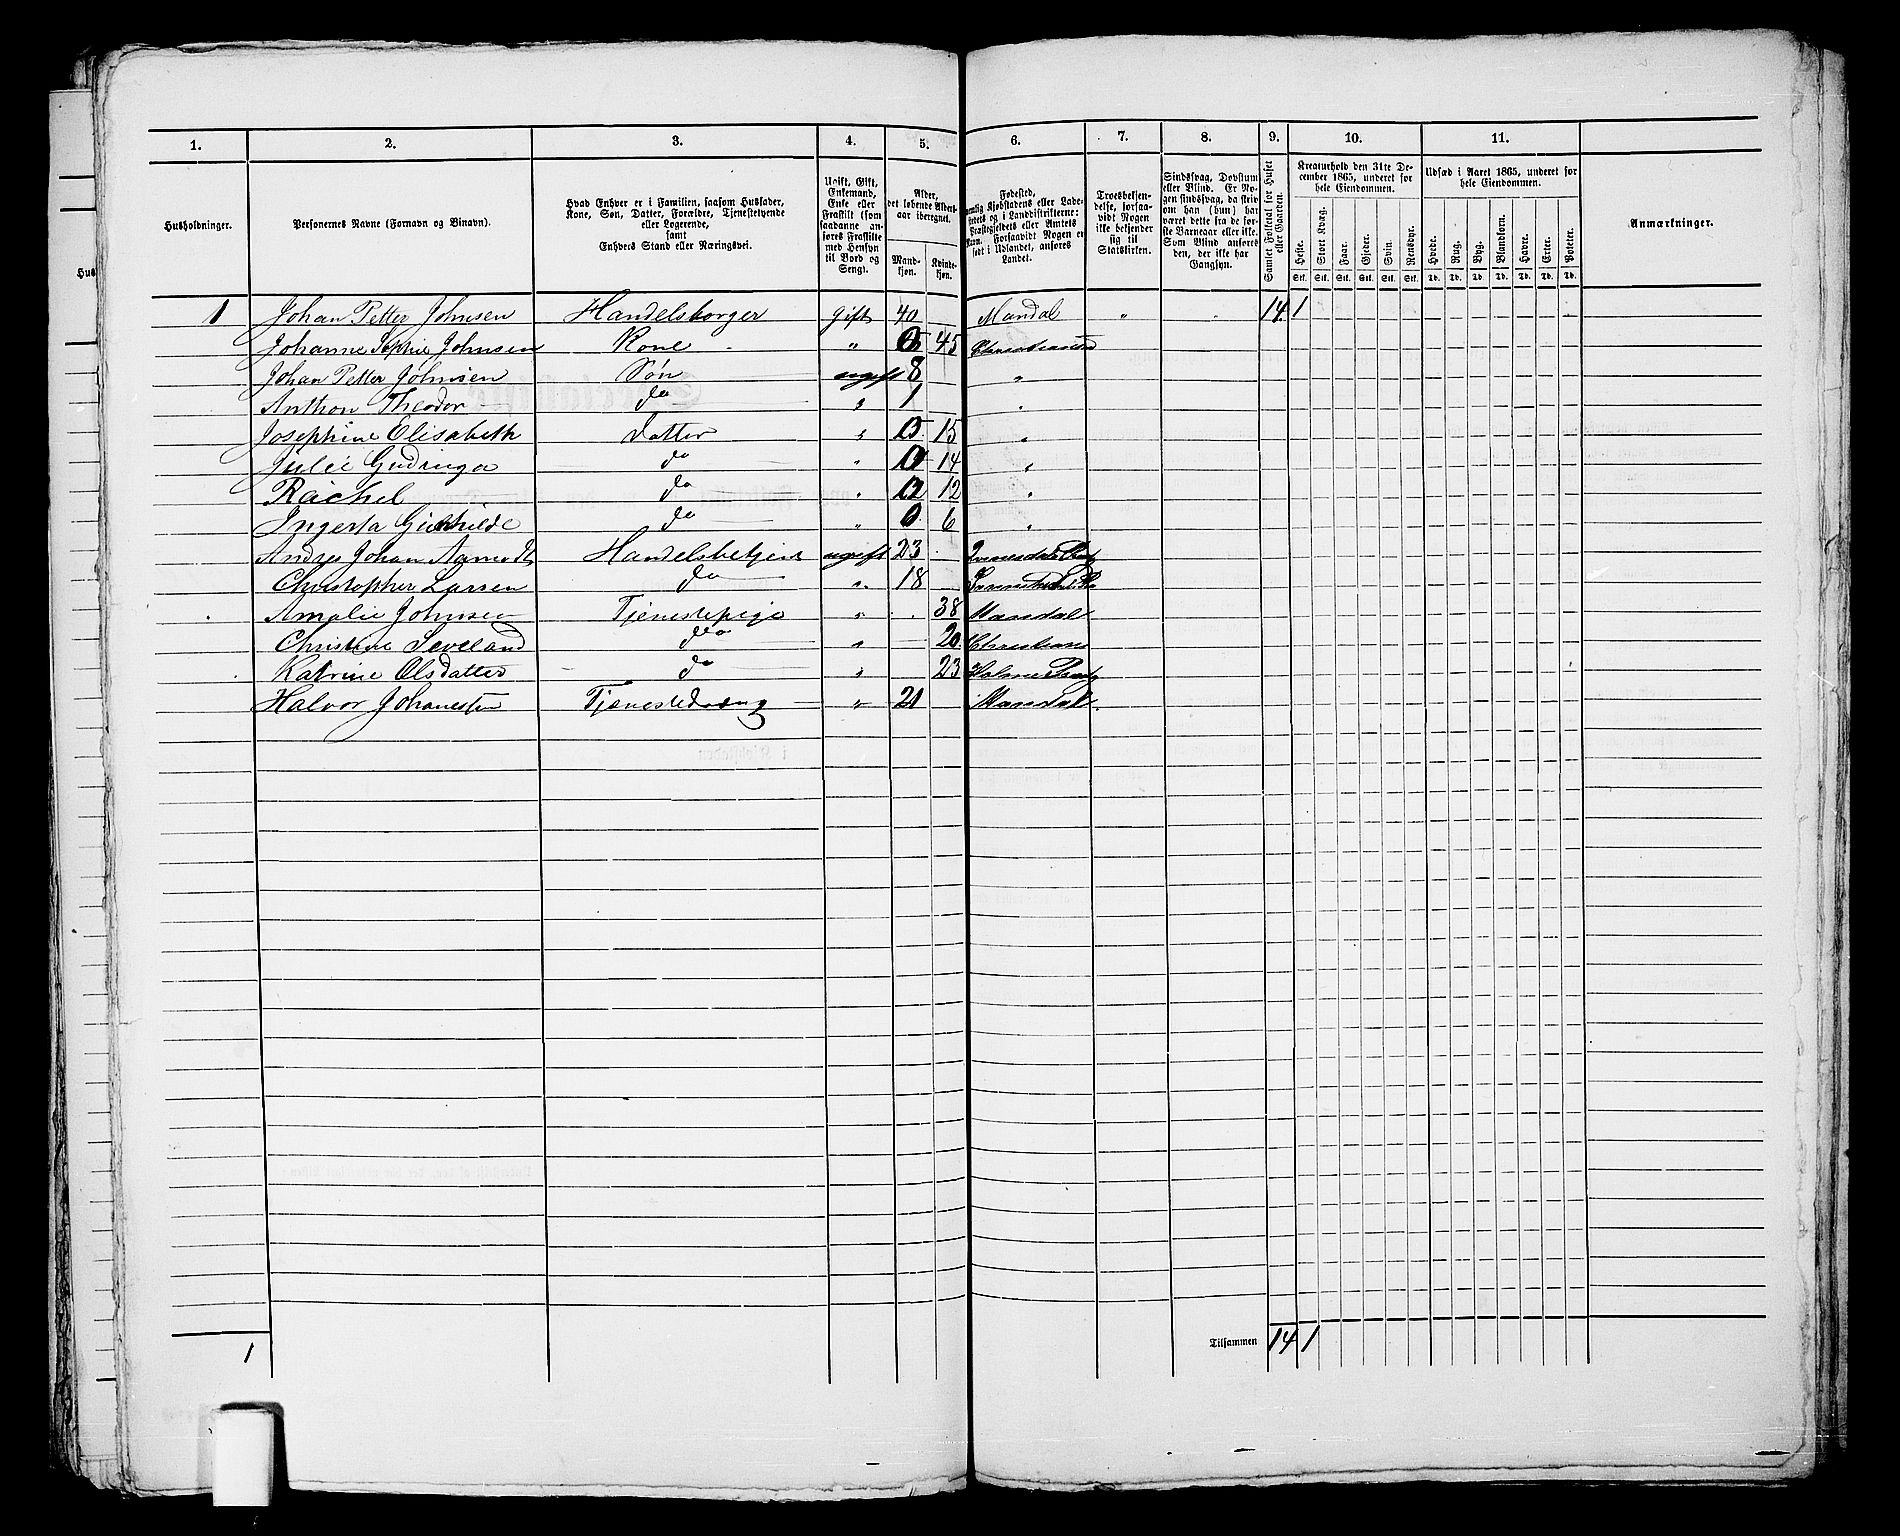 1. 2. 3. 4. 5. 6. 7. 8. 9. 10. 11.
Husholdninger.
Personernes Navne (Fornavn og Binavn).
Hvad Enhver er i Familien, saasom Husfader,
Kone, Søn, Datter, Forældre, Tjenestetyende
eller Logerende,
samt
Enhvers Stand eller Næringsvei.
Ugift, Gift,
Enkemand,
Enke eller
Fraskilt (som
saadanne an-
føres Fraskilte
med Hensyn
til Bord og
Seng).
Alder,
det løbende Alders-
aar iberegnet.
Mand-
kjøn.
Kvinde-
kjøn.
Fødested,
Landet.
Troesbekjen-
delse, forsaa-
vidt Nogen
ikke bekjender
sig til
Statskirken.
Sindssvag, Døvstum
eller Blind. Er No-
gen sindssvag, da skriv
om han (hun) har
været dette fra de før-
ste Barneaar eller ikke.
Som Blind anføres
den, der ikke har
Gangsyn.
Samlet Folketal for Huset
eller Gaarden.
Kreaturhold den 31te De-
cember 1865, underet for
hele Eiendommen.
Heste. Stort Kvæg. Faar. Gjeder. Svin. Rensdyr.
Stk. Stk. Stk. Stk. Stk. Stk.
Udsæd i Aaret 1865, underet for
hele Eiendommen.
Hvede. Rug. Byg. Blandkorn. Havre. Erter. Poteter.
Td. Td. Td. Td. Td. Td. Td.
Anmærkninger.
1 Johan Petter Johnsen Handelsborger Gift 40 Mandal " 14 1
Johanne Sophie Johnsen Kone " 45
Johan Petter Johnsen Søn ugift 8 "
Anthon Theodor do " 1 "
Josephine Elisabeth Datter " 15 "
Julie do " 14 "
Rachel do " 12 "
do " 6 "
Johan ugift 23
Christopher Larsen do " 18
Amalie Johnsen Tjenestepige " 38 Mandal
Christine do " 20
Katrine Olsdatter do " 23
Halvor Tjenestedreng " 21 Mandal
1 Tilsammen 14 1